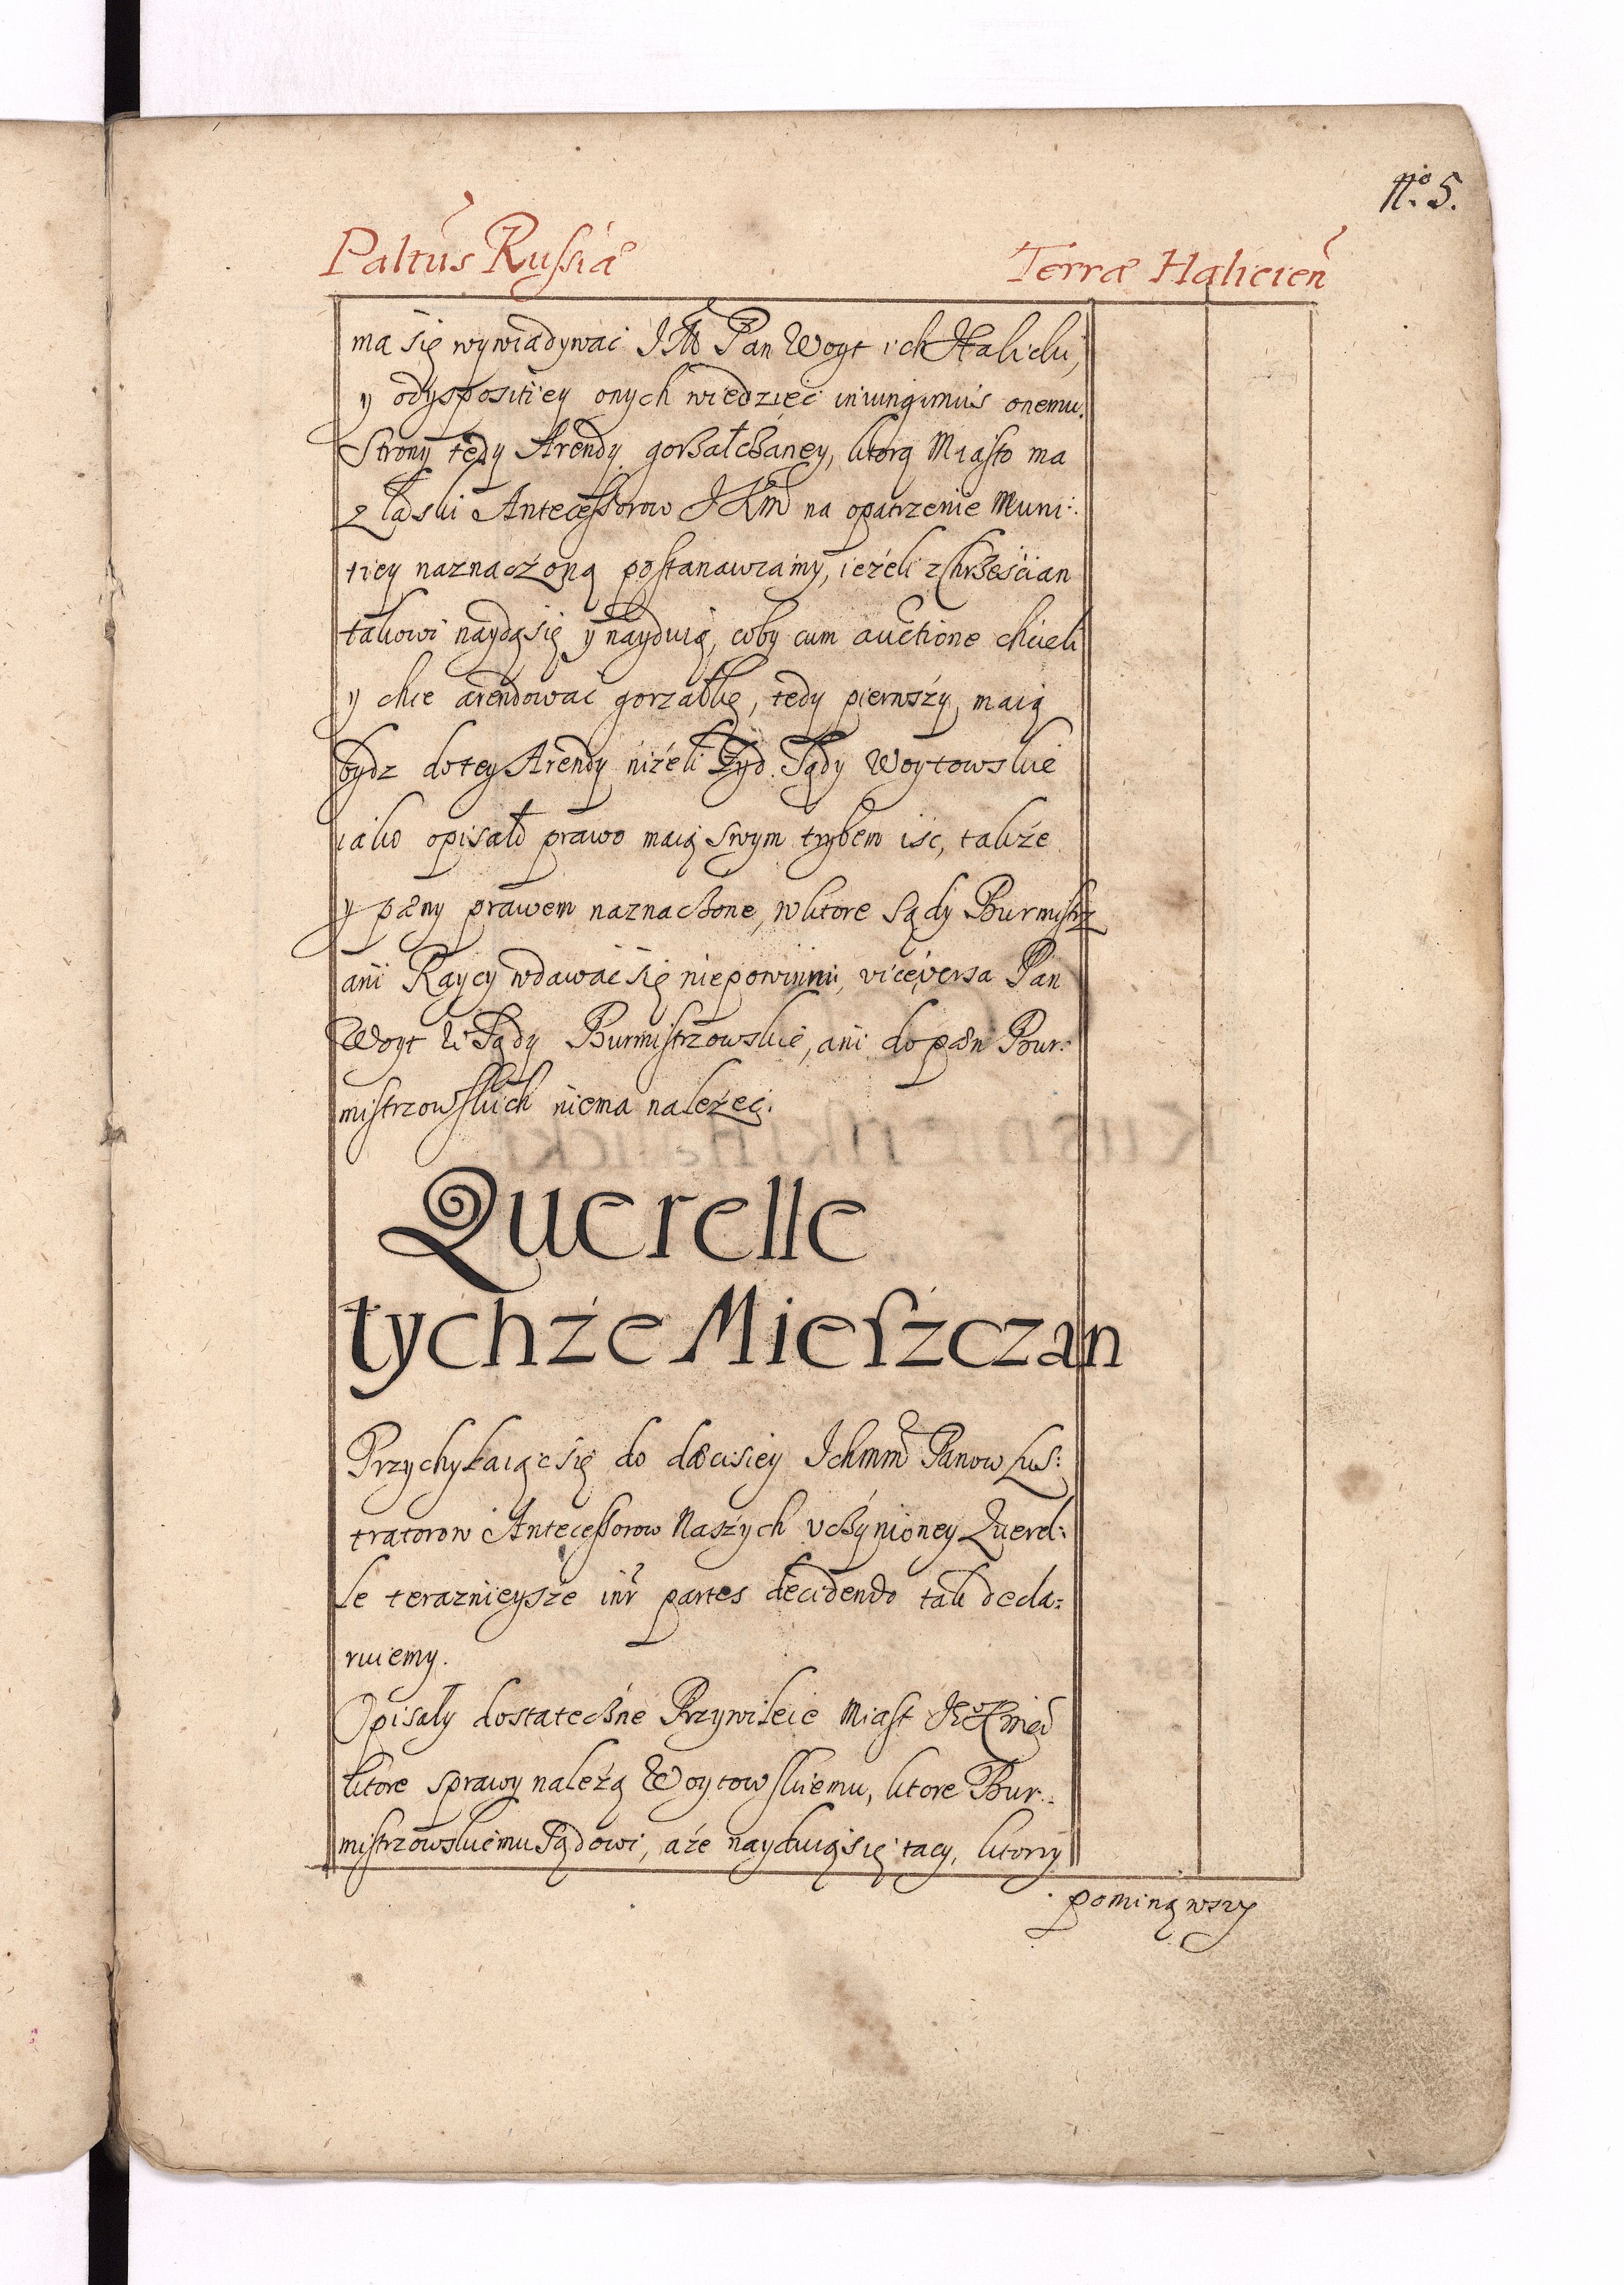 No. 5.
Paltūs Russiæ Terræ Halicieñ
ma się wywiadywać JM Pan Woyt ich Halicki,
y odyspositiey onych wiedzieć iniungimus onemu.
Strony tedy Arendy gorzałczaney, ktorą Miasto ma
z łaski Antecessorow JKM na opatrzenie Muni:
tiey naznaczoną postanawiamy, ieżeli z Chrześcian
takowi naydą się y nayduią, coby cum auctione chcieli
y chce arendować gorzałkę, tedy pierwszy maią
bydz dotey Arendy niżeli Żyd. Sądy Woytowskie
iako opisało prawo maią swym trybem iść, także
y pæny prawem naznaczone, w ktore sądy Burmistrz
ani Raycy wdawać się niepowinni, viceversa Pan
Woyt w Sądy Burmistrzowskie, ani do pæn Bur:
mistrzowskich niema należeć.
Querelle
tychże Mieszczan
Przychylaiąc się do dæcisiey Ichmm Panow Lus:
tratorow Antecessorow Naszych uczynioney Querel:
le teraznieysze inr partes decidendo tak decla:
ruiemy.
Opisały dostatecznie Przywileie Miast
ktore sprawy należą Woytowskiemu, ktore Bur:
mistrzowskiemu Sądowi, aże nayduią się tacy, ktorzy
pominąwszy